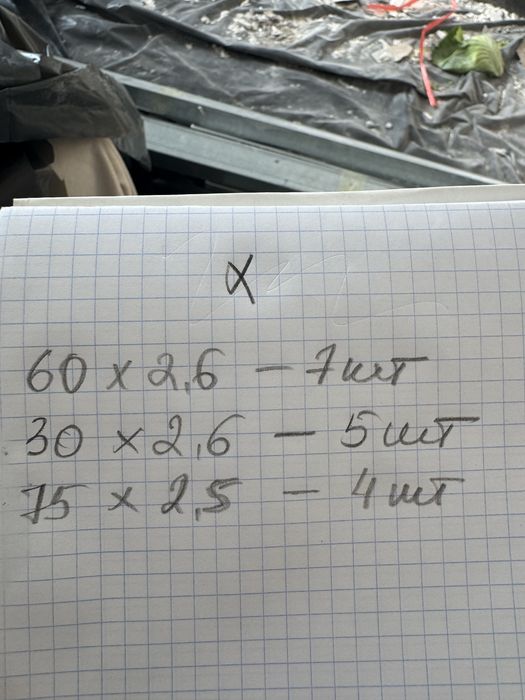 х
60 х 2,6 – 7 шт
30 х 2,6 – 5 шт
75 х 2,5 – 4 шт